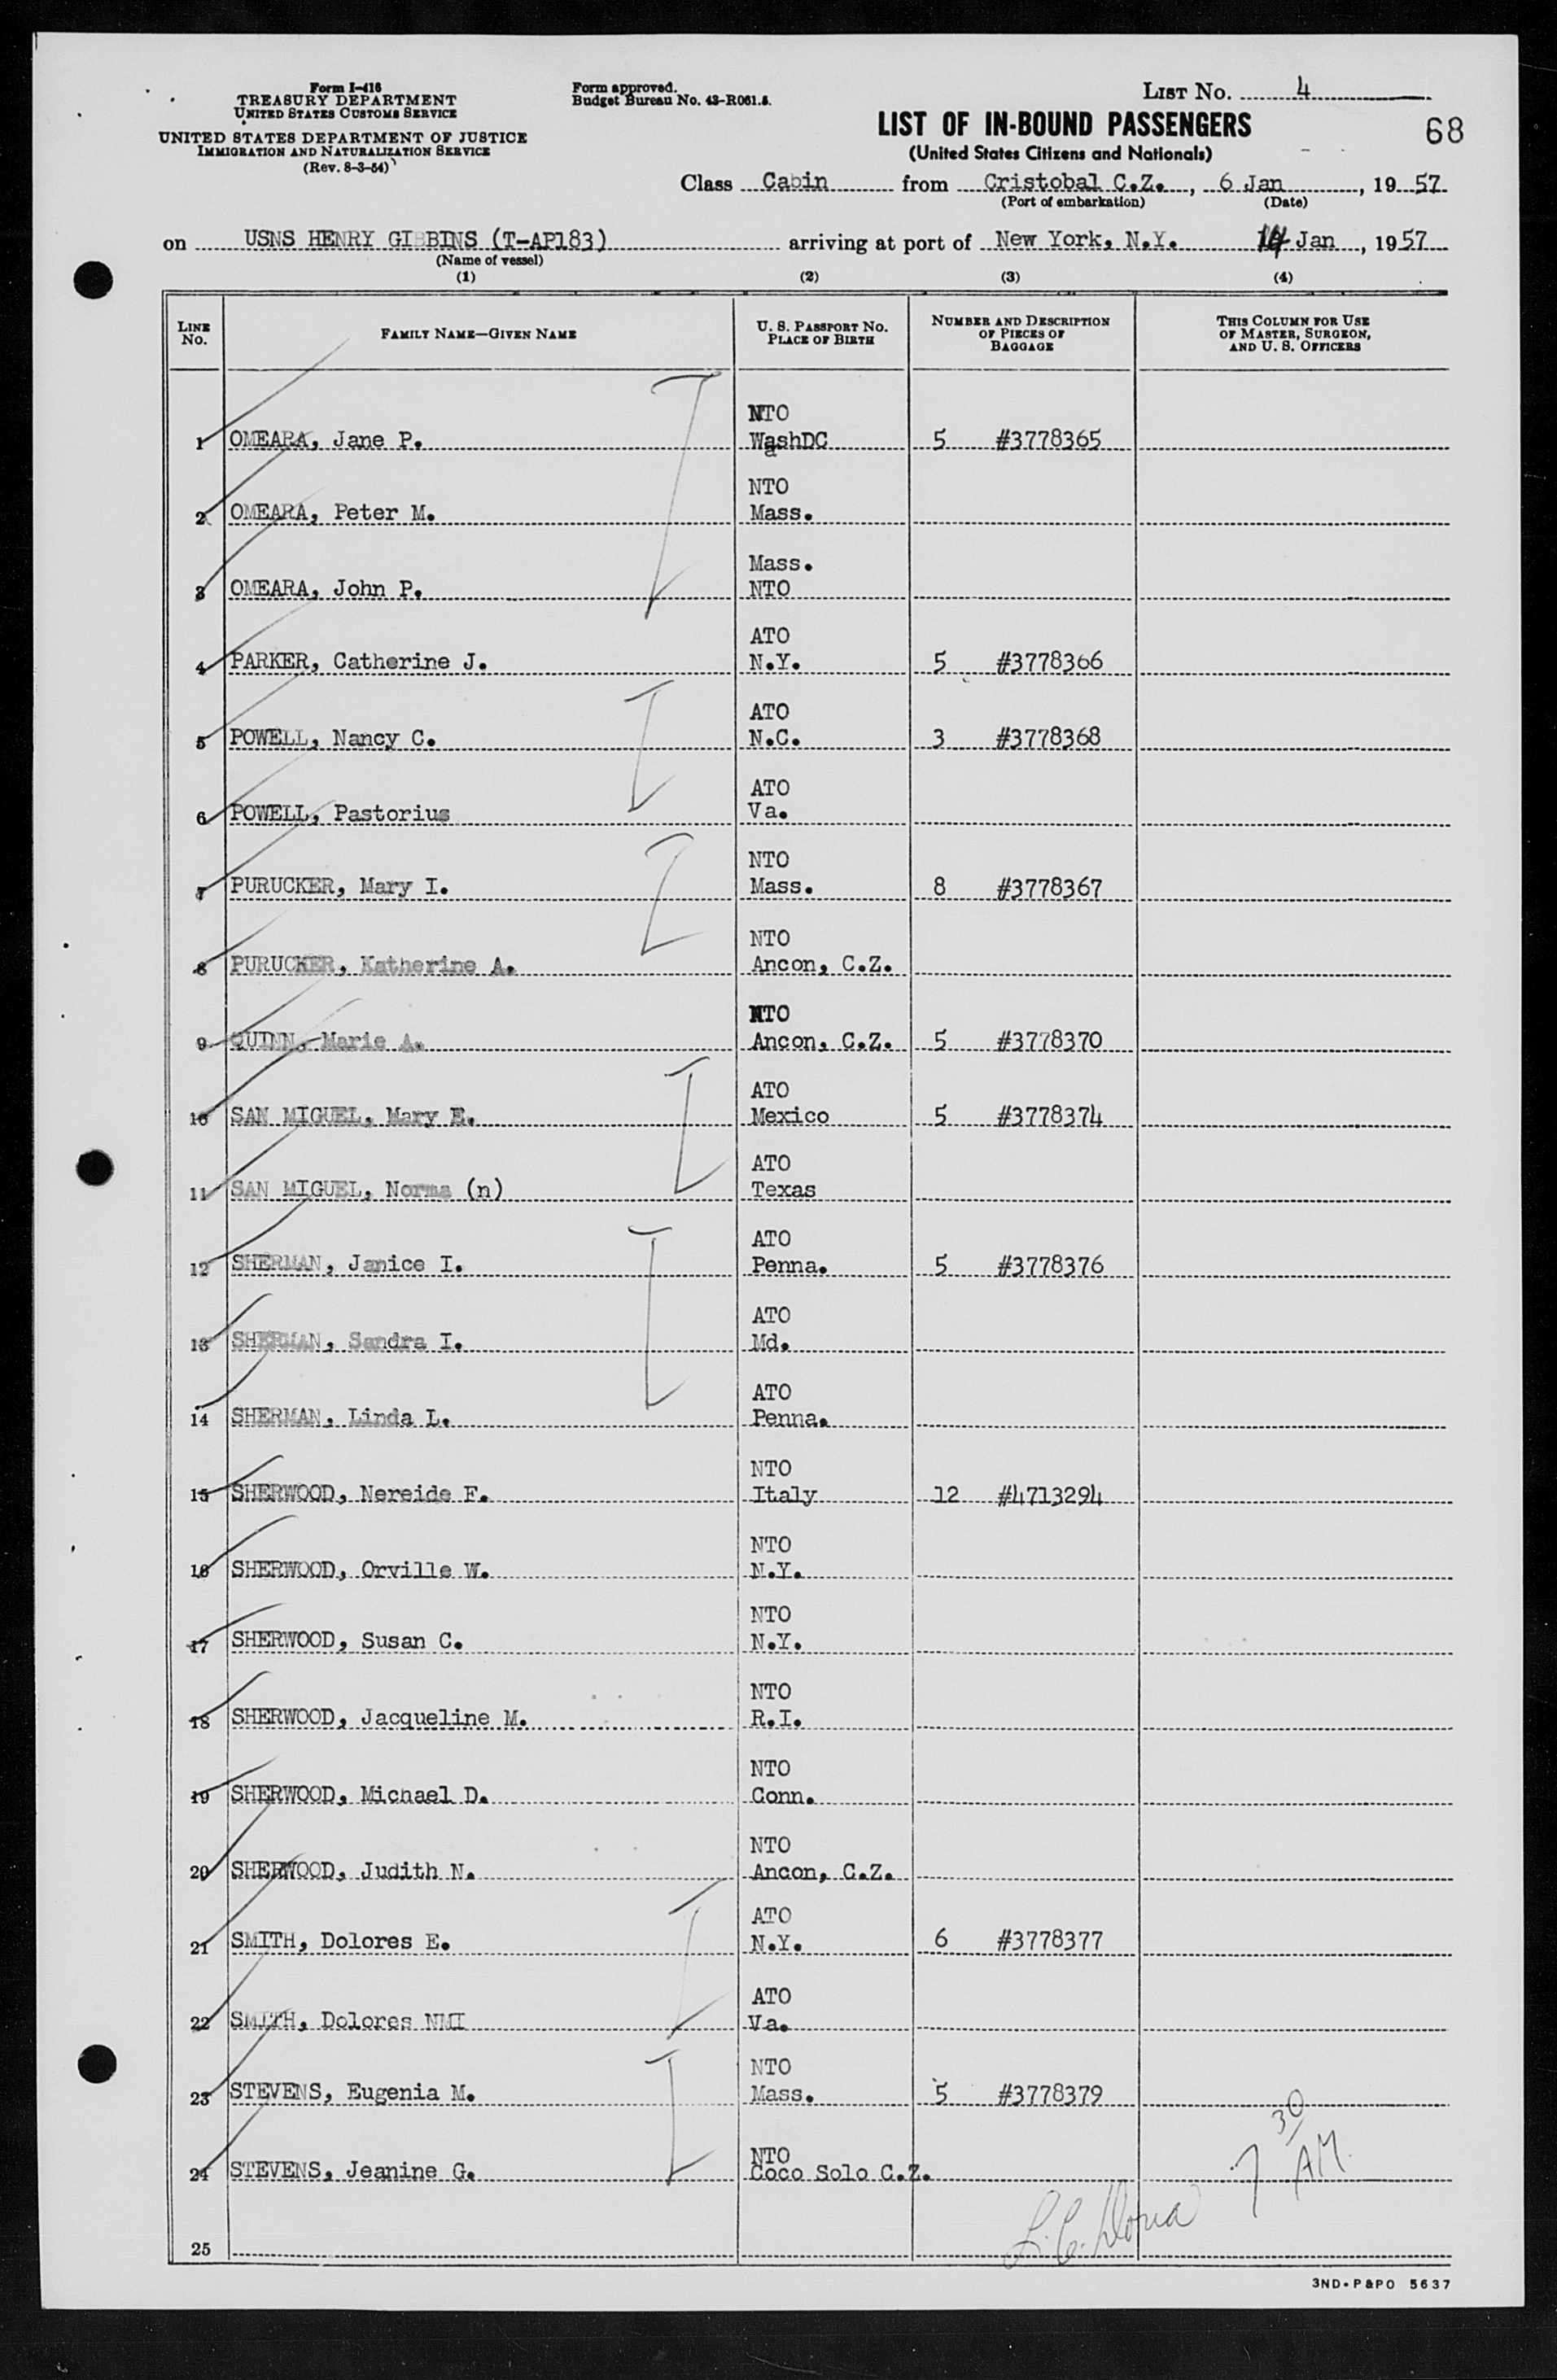 Form I-416
TREASURY DEPARTMENT
UNITED STATES CUSTOMS SERVICE
UNITED STATES DEPARTMENT OF JUSTICE
IMMIGRATION AND NATURALIZATION SERVICE
(Rev. 8-3-54)
Form approved.
Budget Bureau No. 43-R061.5.
LIST NO. 4
LIST OF IN-BOUND PASSENGERS
68
(United States Citizens and Nationals)
Class Cabin from Cristobal C.Z., 6 Jan, 1957
(Port of embarkation) (Date)
on USNS HENRY GIBBINS (T-AP183) arriving at port of New York, N.Y. 14 Jan, 1957
(Name of vessel)
(1) (2) (3) (4)
LINE NO. FAMILY NAME—GIVEN NAME U. S. PASSPORT NO. PLACE OF BIRTH NUMBER AND DESCRIPTION OF PIECES OF BAGGAGE THIS COLUMN FOR USE OF MASTER, SURGEON, AND U. S. OFFICERS
NTO
1 OMEARA, Jane P. WashDC 5 #3778365
NTO
2 OMEARA, Peter M. Mass.
Mass.
3 OMEARA, John P. NTO
ATO
4 PARKER, Catherine J. N.Y. 5 #3778366
ATO
5 POWELL, Nancy C. N.C. 3 #3778368
ATO
6 POWELL, Pastorius Va.
NTO
7 PURUCKER, Mary I. Mass. 8 #3778367
NTO
8 PURUCKER, Katherine A. Ancon, C.Z.
NTO
9 QUINN, Marie A. Ancon, C.Z. 5 #3778370
ATO
10 SAN MIGUEL, Mary E. Mexico 5 #3778374
ATO
11 SAN MIGUEL, Norma (n) Texas
ATO
12 SHERMAN, Janice I. Penna. 5 #3778376
ATO
13 SHERMAN, Sandra I. Md.
ATO
14 SHERMAN, Linda L. Penna.
NTO
15 SHERWOOD, Nereide F. Italy 12 #4713294
NTO
16 SHERWOOD, Orville W. N.Y.
NTO
17 SHERWOOD, Susan C. N.Y.
NTO
18 SHERWOOD, Jacqueline M. R.I.
NTO
19 SHERWOOD, Michael D. Conn.
NTO
20 SHERWOOD, Judith N. Ancon, C.Z.
ATO
21 SMITH, Dolores E. N.Y. 6 #3778377
ATO
22 SMITH, Dolores NMI Va.
NTO
23 STEVENS, Eugenia M. Mass. 5 #3778379
NTO
24 STEVENS, Jeanine G. Coco Solo C.Z.
7 30 AM
25
3ND-P&PO 5637